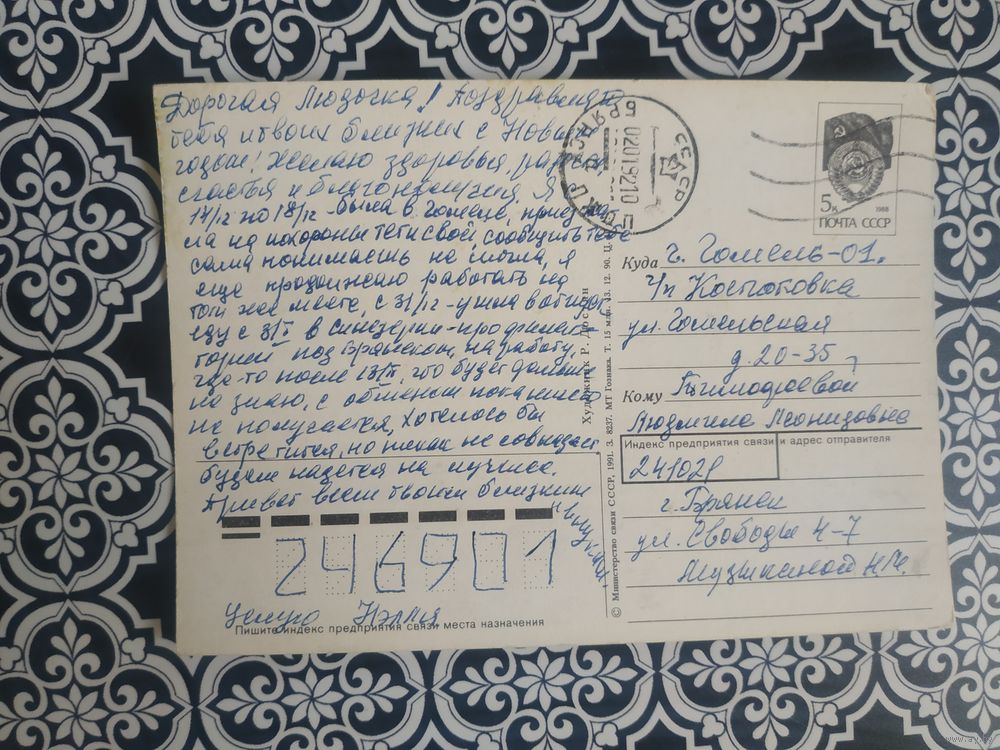 Дорогая Людочка! Поздравляю
тебя и твоих близких с Новым
годом! Желаю здоровья,
счастья и благополучия. Я
14/12 по 18/12 - была в Гомеле, приезжа
ла на похороны тети своей сообщить тебе
сама понимаешь не могла, я
еще продолжаю работать на
том же месте, с 31/12 - ушла в отпуск
еду с 3/I в синезерки - профилак
торий под Брянском, на работу,
где-то после 13/II, что будет дальше
не знаю, с обменом пока ничего
не получается, хотелось бы
встретится, но никак не совпадает
будем надется на лучшее.
Привет всем твоим близким
Целую Нэлли
246901
Пишите индекс предприятия связи места назначения
СССР
020192 10
5к 1988
ПОЧТА СССР
Куда г. Гомель-01.
ч/п Костюковка
ул. Гомельская
д. 20-35
Кому Тимофеевой
Людмила Леонидовна
Индекс предприятия связи и адрес отправителя
241029
г. Брянск
ул. Свободы 4-7
Н.М.
© Министерство связи СССР, 1991. З. 8237. МТ Гознака. Т. 15 млн. 13. 12. 90. Ц.
Художник Р.
www.ay.by